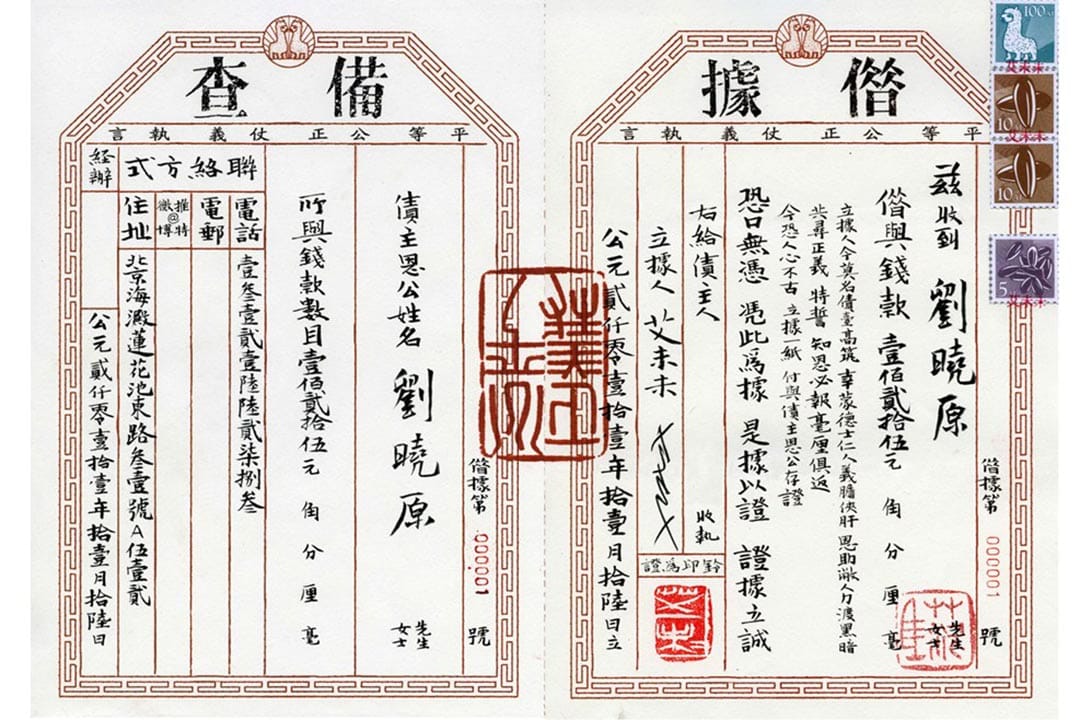 借據
平等公正仗義執言
茲收到 劉曉原 先生 女士
借與錢款 壹佰貳拾伍元 角 分 厘 毫
立據人今莫名債臺高筑 幸蒙德士仁人義膽俠肝 恩助敝人力渡黑暗
共尋正義 特誓 知恩必報毫厘俱返
今恐人心不古 立據一紙 付與債主恩公存證
恐口無憑 憑此為據 是據以證 證據立誠
右給債主人 收執
立據人 艾未未
鈐印為證
公元貳仟零壹拾壹年拾壹月拾陸日立
借據第 000001 號
100分
艾未未
10分
艾未未
10分
5
艾未未
備查
平等公正仗義執言
借據第 000001 號
債主恩公姓名 劉曉原 先生 女士
所與錢款數目 壹佰貳拾伍元 角 分 厘 毫
聯絡方式
電話 壹叁壹貳壹陸陸貳柒捌叁
電郵
推特@微博
住址 北京海澱蓮花池東路叁壹號A伍壹貳
經辦
公元貳仟零壹拾壹年拾壹月拾陸日